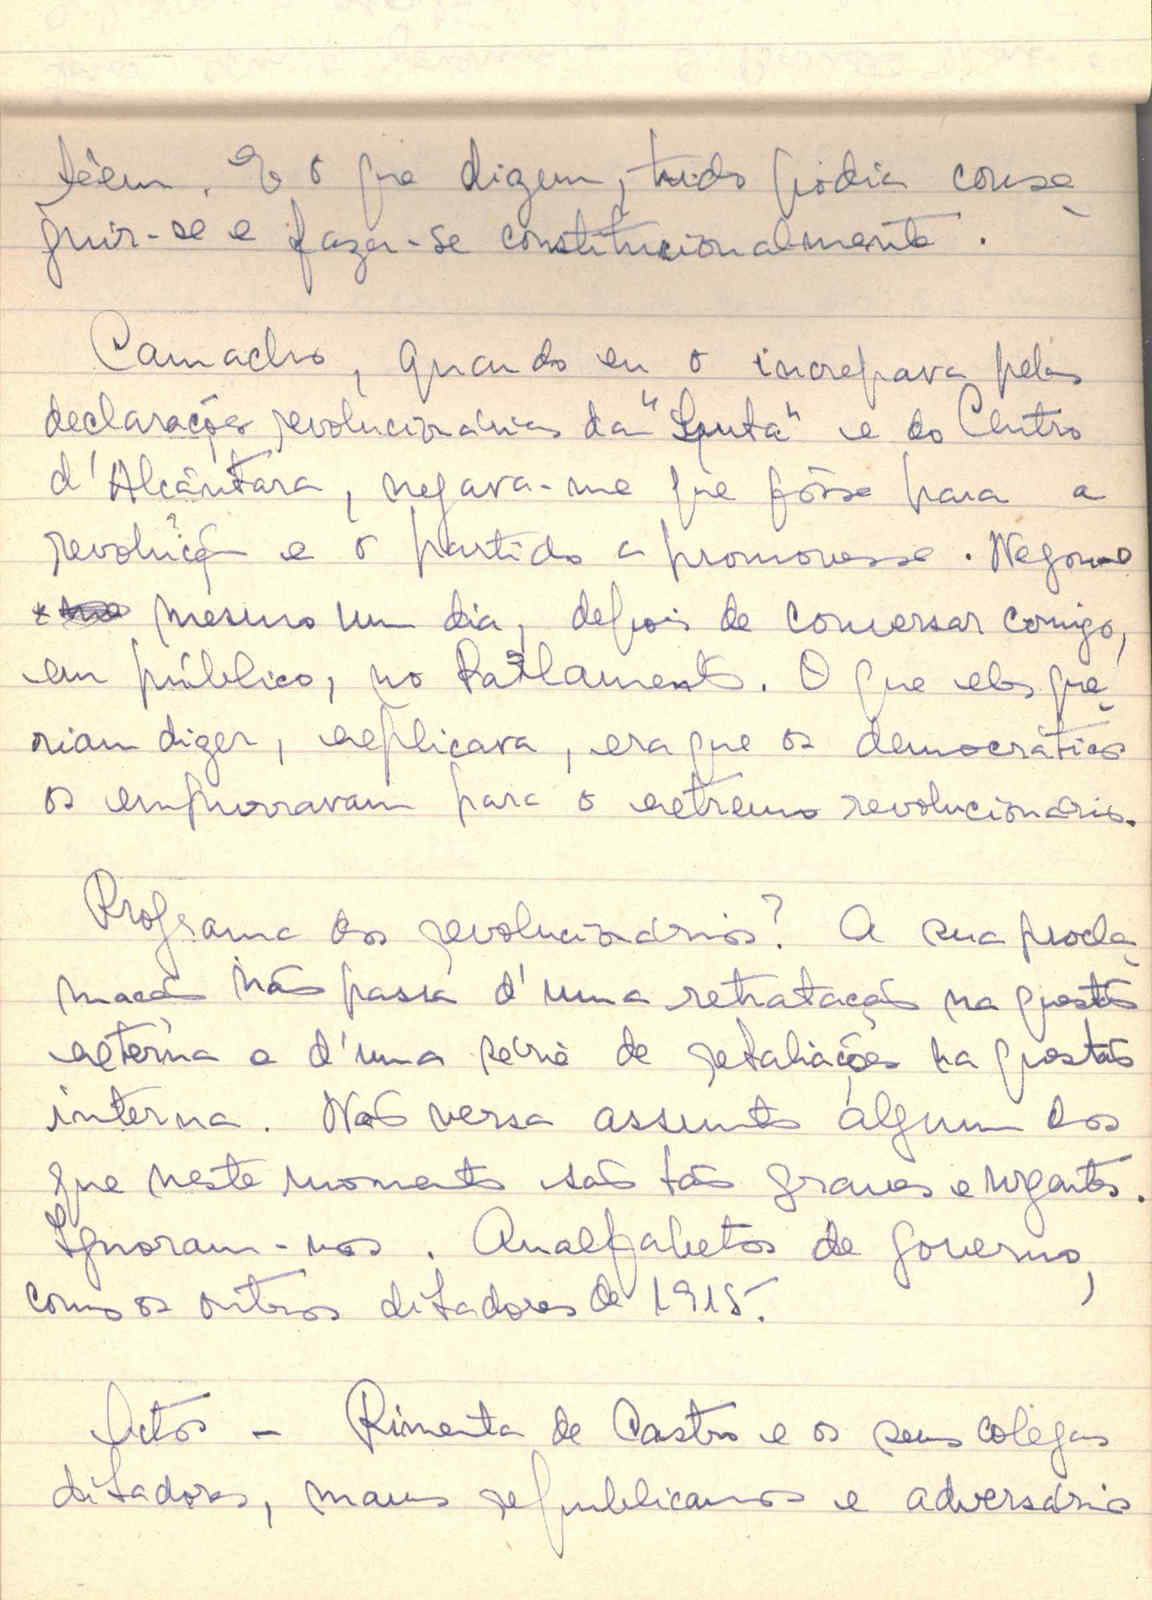 lêem. E o que dizem, tudo podia conse-
guir-se e fazer-se constitucionalmente.
Camacho, quando eu o increpava pelas
declarações revolucionárias da "Lucta" e do Centro
d'Alcântara, negava-me que fôsse para a
revolução e o partido a promovesse. Negou-o
mesmo um dia, depois de conversar comigo,
em público, no Parlamento. O que eles que-
riam dizer, explicava, era que os democráticos
os empurravam para o extremo revolucionário.
Programa dos revolucionários? A sua procla-
mação não passa d'uma retratação na questão
externa e d'uma série de retaliações na questão
interna. Não versa assunto algum dos
que neste momento são tão graves e urgentes.
Ignoram-nos. Analfabetos de governo,
como os outros ditadores de 1915.
Actos - Pimenta de Castro e os seus colegas
ditadores, maus republicanos e adversários